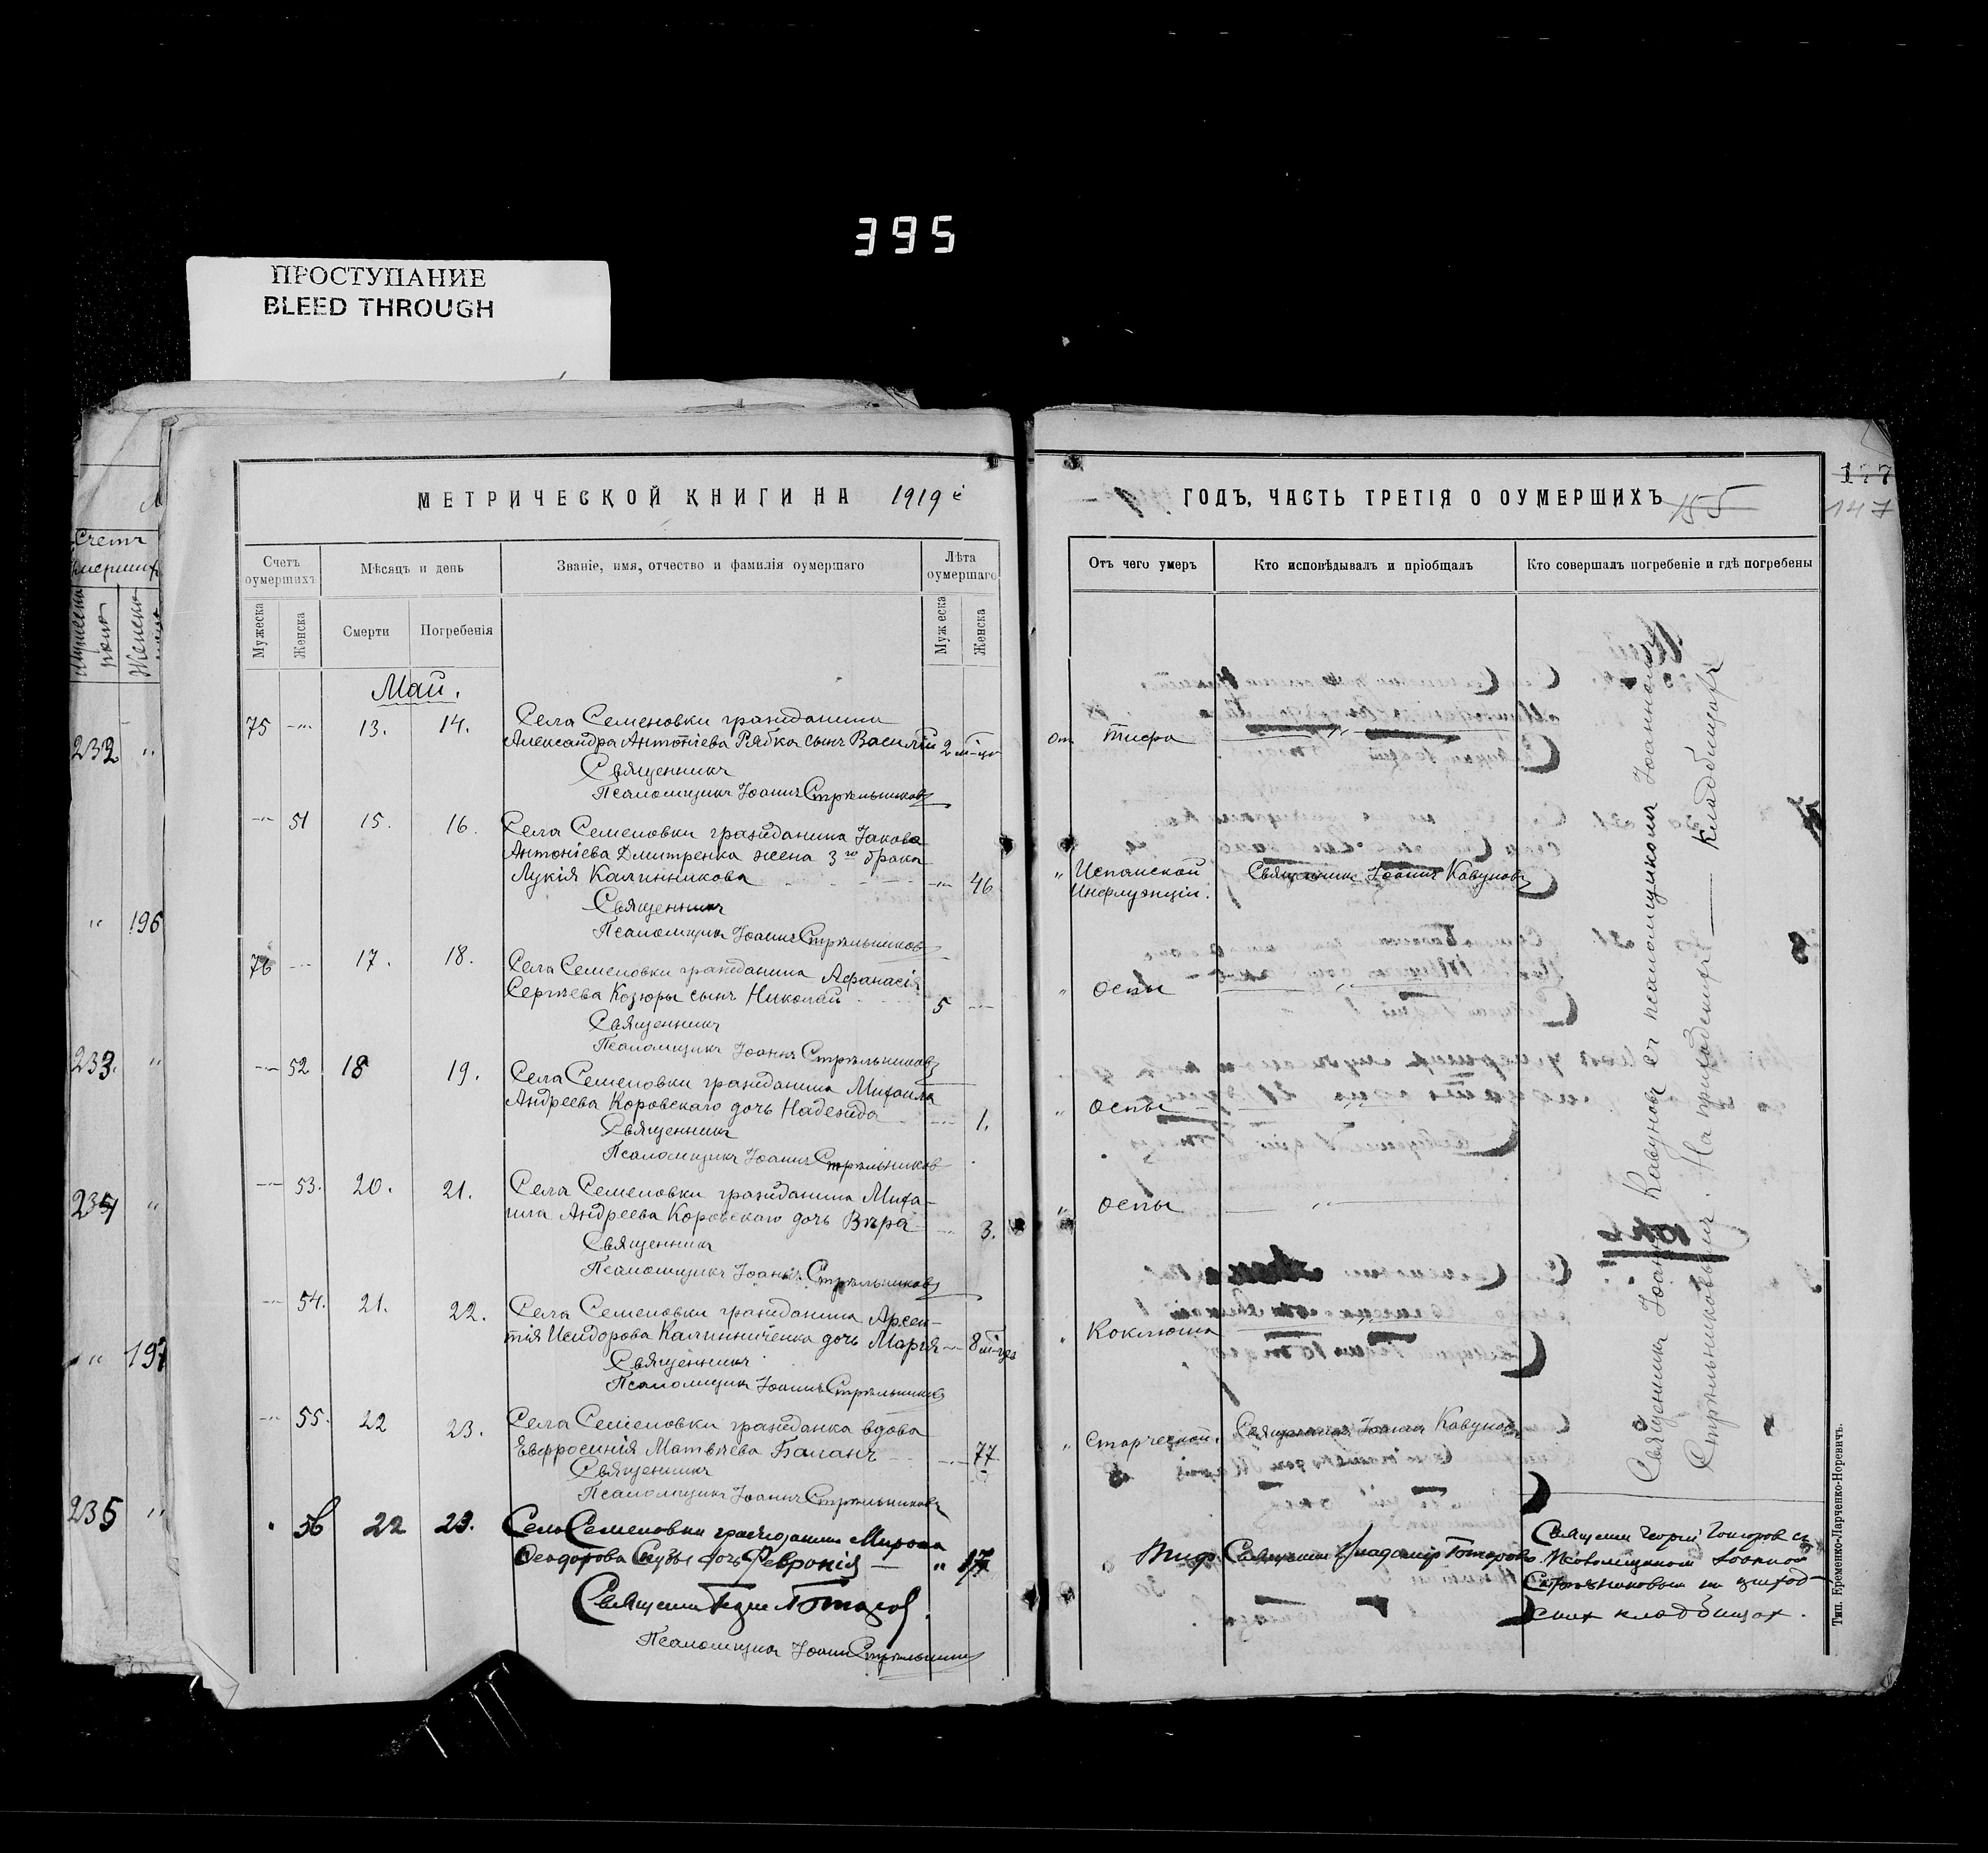 395
ПРОСТУПАНИЕ
BLEED THROUGH
МЕТРИЧЕСКОЙ КНИГИ НА 1919
Счетъ оумершихъ
Мѣсяцъ и день
Званіе, имя, отчество и фамилія оумершаго
Лѣта оумершаго
Мужеска
Женска
Смерти
Погребенія
Мужеска
Женска
Май.
75 13. 14. Села Семеновки гражданина
Александра Антоніева Рябка сынъ Василій 2
Священникъ
Псаломщикъ Іоаннъ Стрѣльниковъ
51 15. 16. Села Семеновки гражданина Іакова
Антоніева Дмитренка жена 3го брака
Лукія Калинникова 46
Священникъ
Псаломщикъ Іоаннъ Стрѣльниковъ
76 17. 18. Села Семеновки гражданина Афанасія
Сергѣева Козюры сынъ Николай 5
Священникъ
Псаломщикъ Іоаннъ Стрѣльниковъ
52 18 19. Села Семеновки гражданина Михаила
Андреева Коровскаго дочь Надежда 1.
Священникъ
Псаломщикъ Іоаннъ Стрѣльниковъ
53. 20. 21. Села Семеновки гражданина Миха-
ила Андреева Коровскаго дочь Вѣра 3.
Священникъ
Псаломщикъ Іоаннъ Стрѣльниковъ
54. 21. 22. Села Семеновки гражданина Арсен-
тія Исидорова Калинниченка дочь Марія 8
Священникъ
Псаломщикъ Іоаннъ Стрѣльниковъ
55. 22 23. Села Семеновки гражданка вдова
Евфросинія Матвѣева Баланъ 77
Священникъ
Псаломщикъ Іоаннъ Стрѣльниковъ
56 22 23. Села Семеновки гражданина Мирона
Феодорова дочь Февронія 17
Священникъ
Псаломщикъ Іоаннъ Стрѣльниковъ
ГОДЪ, ЧАСТЬ ТРЕТІЯ О ОУМЕРШИХЪ
155
147
Отъ чего умеръ
Кто исповѣдывалъ и пріобщалъ
Кто совершалъ погребеніе и гдѣ погребены
От тифа
Испанской Священникъ Іоаннъ Кавуновъ
Инфлуэнціи.
оспы
оспы
оспы
Коклюша
Старческой. Священникъ Іоаннъ Кавуновъ
Священникъ Іоаннъ Кавуновъ съ псаломщикомъ Іоанномъ
Стрѣльниковымъ. На приходскихъ кладбищахъ
Тиф.
кладбищах.
Тип. Еременко-Ларченко-Норевичъ.
232
196
233.
234
197
235